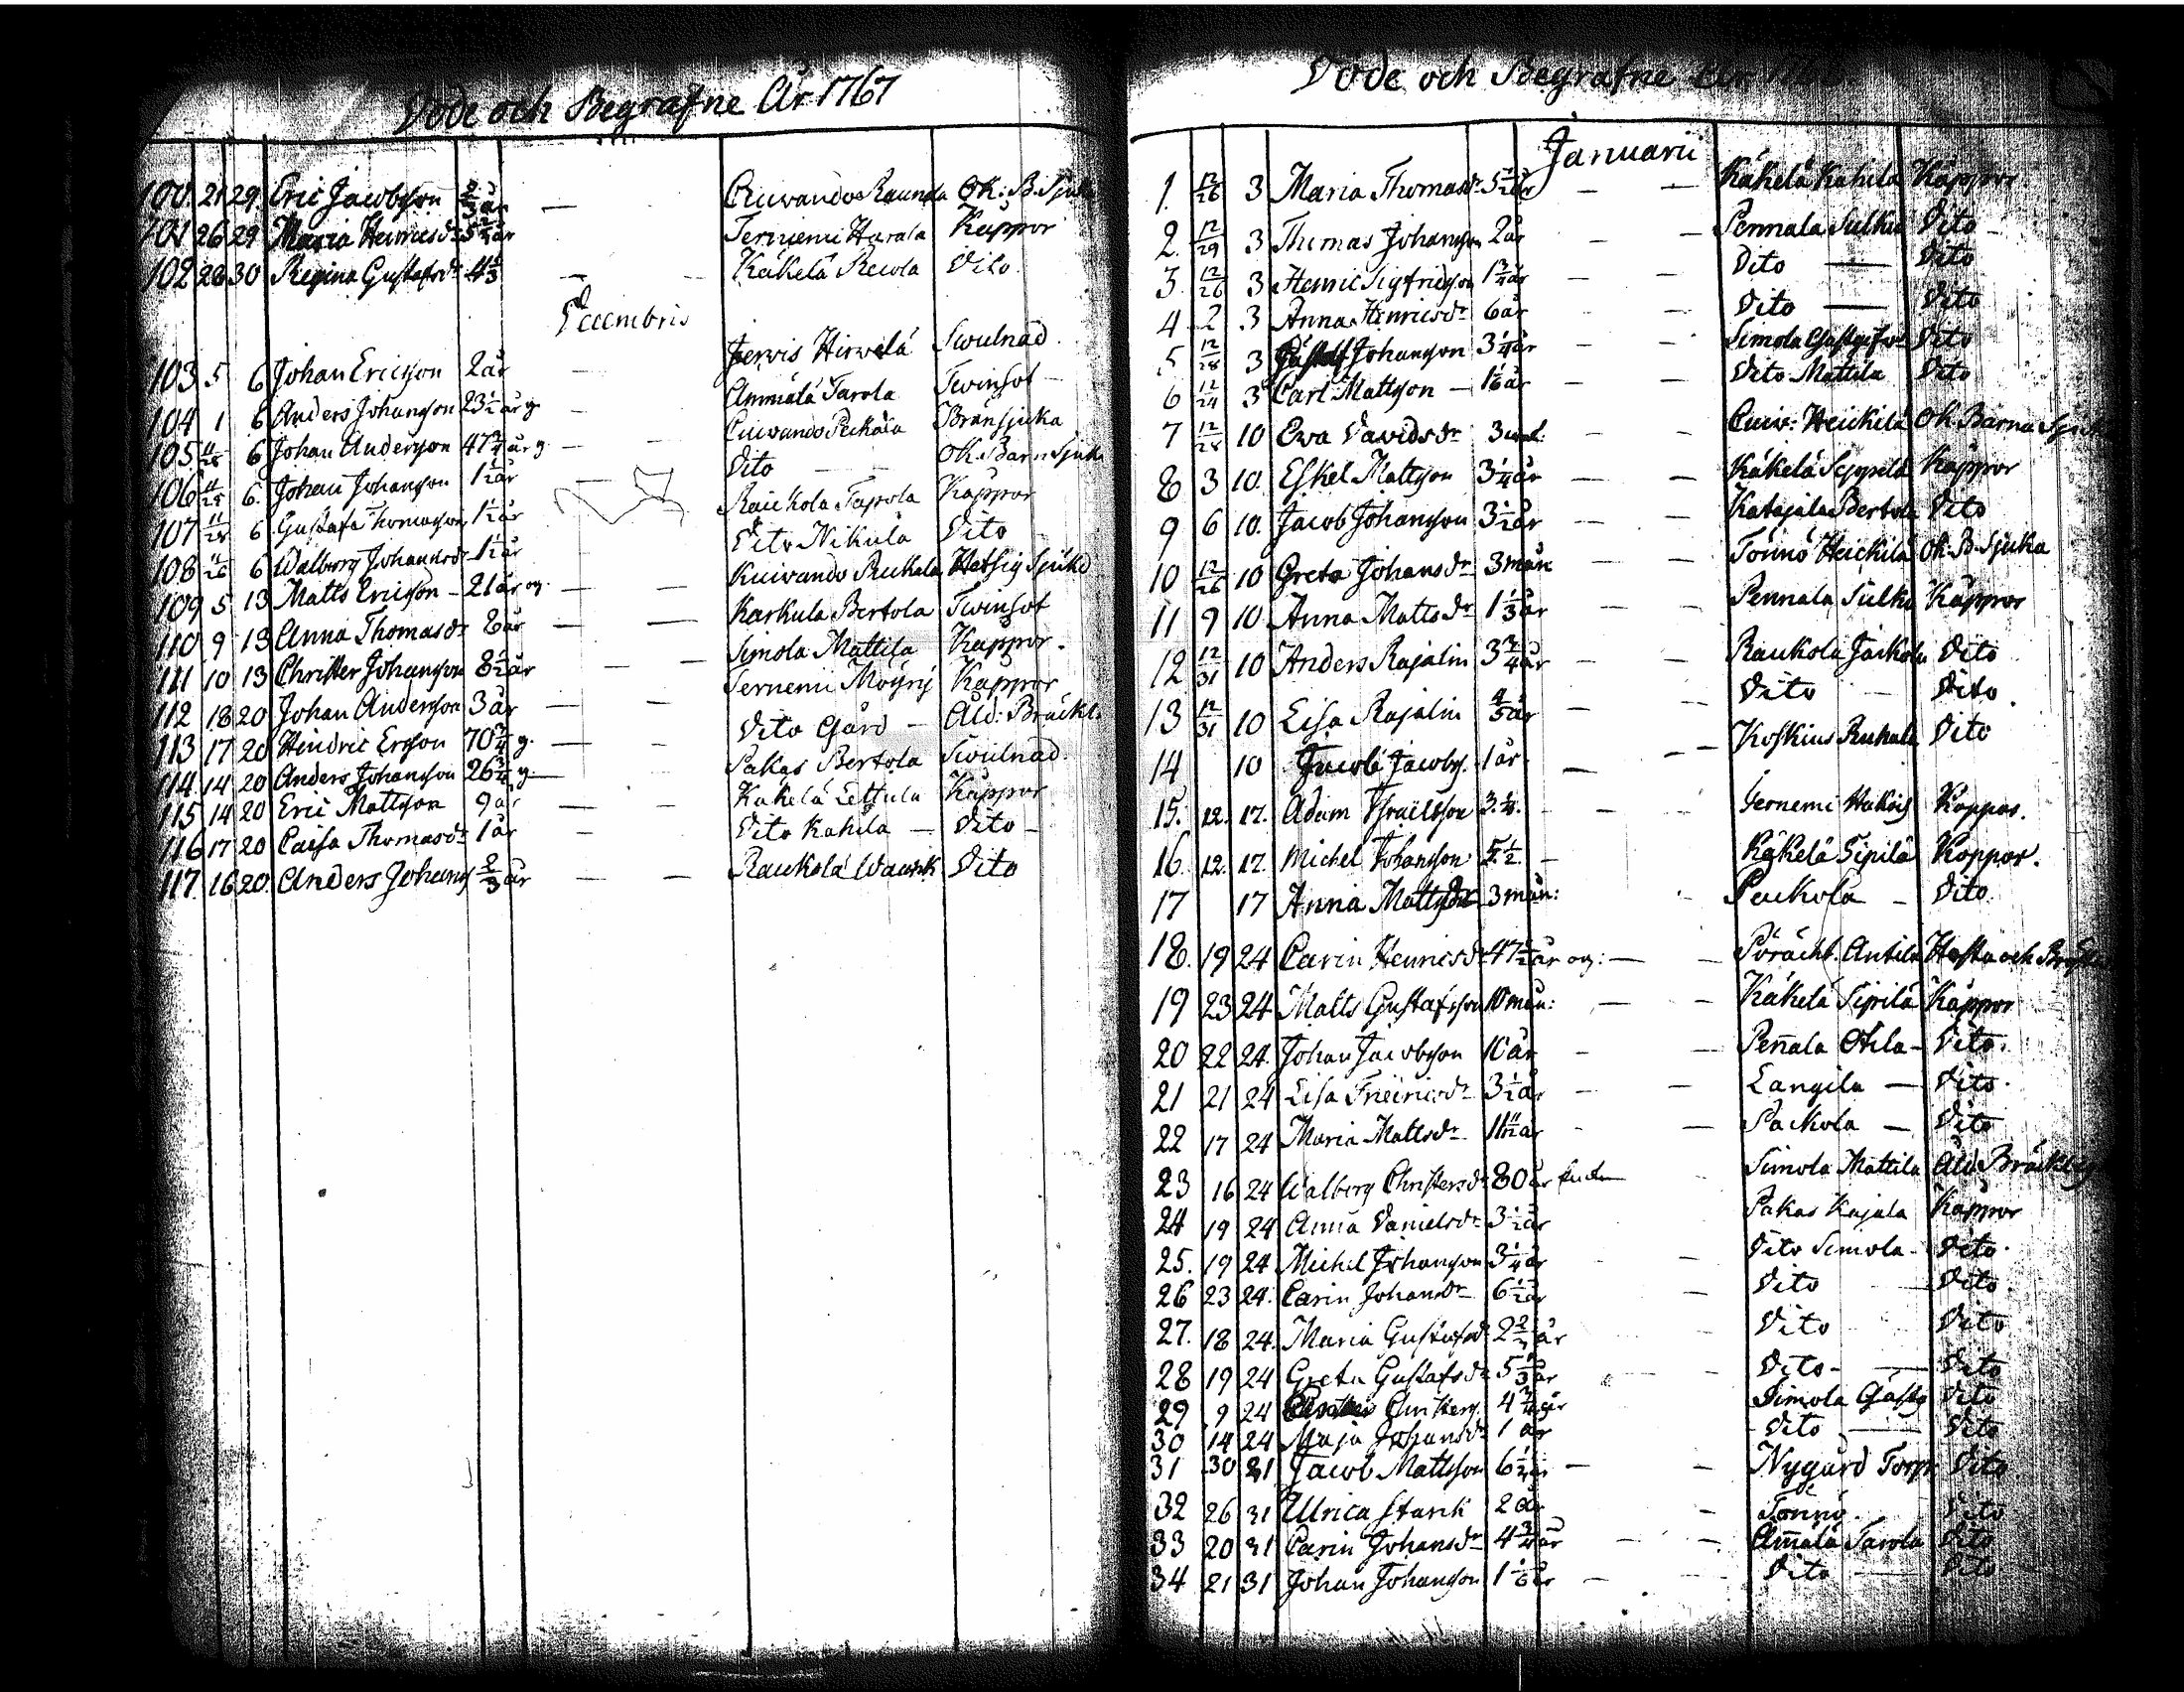 Döde och Begrafne År 1767
100. 21 29. Eric Jacobsson 2/3 år — Cuivando Raunda Ok: B. Sjuka
101 26 29 Maria Henricsdr 5 år Jerniemi Harala Kåppor
102 28 30 Regina Gustafsdr 4 1/3 — — Käkelä Recola Dito
Decembris
103 5 6 Johan Ericsson 2 år — Jervis Hirvelä Swulnad
104 1 6 Anders Johansson 23 1/2 år g. — Ammälä Tarola Twinsot
105 11/28 6 Johan Andersson 47 3/4 år g — — Cuivando Pukala Brännsjuka
106 11/25 6. Johan Johansson 1 1/2 år — Dito — — Ok. Barn Sjuk
107 11/28 6 Gustaf Thomasson 1 1/2 år Raukola Tapola Kåppor
108 11/26 6 Walborg Johansdr 1 1/2 år Dito Nikula Dito
109 5 13 Matts Ericsson — 21 år og — — Kuivando Pukala Hetsig Sjukd
110 9 13 Anna Thomasdr 8 år — — Karkula Bertola Twinsot
111 10 13 Christer Johansson 8 1/2 år — — Simola Mattila Kåppor.
112 18 20 Johan Andersson 3 år — — Jernemi Möyry Kåppor
113 17 20 Hindric Ersson 70 3/4 g. — — Dito Gård — Åld: Bräckl.
114. 14 20 Anders Johansson 26 3/4 g — Pakas Bertola Swulnad.
115 14 20 Eric Mattsson 9 år — — Käkelä Lettula Kåppor
116 17 20 Caisa Thomasdr 1 år — Dito Kahila — Dito —
117. 16 20. Anders Johanss 2/3 år — — Raukola Dito
Döde och Begrafne
Januarii
1. 12/26 3 Maria Thomasdr 5 1/2 år — — Käkelä Kahila Kåppor
2. 12/29 3 Thomas Johansson 2 år — — Pennala Sulku Dito
3. 12/26 3 Henric Sigfridsson 1 3/4 år — — Dito — Dito
4 2 3 Anna Henricsdr 6 år — — Dito — Dito
5 12/28 3 Johansson 3 1/4 år — — Simola Dito
6 12/24 3 Carl Mattsson — 1 1/6 år — — Dito Mattila Dito
7 12/28 10 Ewa Davidsdr 3 — — Cuiv: Heickilä Ok. Barna Sjuk
8 3 10. Eskel Mattsson 3 1/4 år — — Käkelä Seppälä Kåppor
9 6 10. Jacob Johansson 3 1/2 år — — Katajala Bertola Dito
10 12/26 10 Greta Johansdr 3 mån — — Tönnö Heickilä Ok. B. Sjuka
11 9 10 Anna Mattsdr 1 1/3 år — — Pennala Sulku Kåppor
12 12/31 10 Anders Rajalin 3 3/4 år — — Raukola Jaskola Dito
13 12/31 10 Lisa Rajalin 4/5 år — — Dito — Dito.
14 10 Jacob Jacobs. 1 år — — Koskius Ruhala Dito
15. 12. 17. Adam Israelsson 3. 1/4. — — Jernemi Koppor.
16. 12. 17. Michel Johansson 5 1/2. — Käkelä Sipilä Koppor.
17 17 Anna Mattsdr 3 mån: Paukola — Dito.
18. 19 24 Carin Henricsdr 47 1/2 år og: — — Antila Hosta och
19 23 24 Matts Gustafsson 10 mån: — — Käkelä Sipilä Kåppor
20 22 24. Johan Jacobsson 10 år — — Pennala Otila — Dito.
21 21 24 Lisa Friericsdr 3 1/2 år — — Langila — Dito.
22 17 24 Maria Mattsdr 11/12 år — — Packola — Dito
23 16 24 Walborg Christersdr 80 år Simola Mattila Åld. Bräcklig
24 19 24 Anna Danielsdr 3 1/2 år Pakas Kajala Kåppor
25. 19 24 Michel Johansson 3 1/4 år — Dito Simola — Dito.
26 23 24. Carin Johansdr 6 1/2 år — Dito Dito.
27. 18 24. Maria Gustafsdr 2 år — Dito Dito
28 19 24 Greta Gustafsdr 5 år — Dito — Dito
29 9 24 Christers. 4 3/4 år Simola Dito
30 14 24 Maja Johansdr 1 år Dito — Dito
31 30 31 Jacob Mattsson 6 1/2 år — — Nygård Torp Dito
32 26 31 Ulrica Stark 2 år — Tönnö Dito
33 20 31 Carin Johansdr 4 3/4 år — — Amälä Tarola Dito
34 21 31 Johan Johansson 1 1/6 år — — Dito — Dito